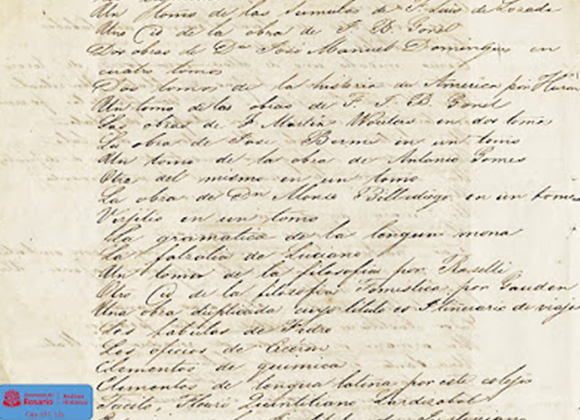 Un tomo de las sumulas de P. Luis de Lozada
Otro id de la obra de J. B. Gonel
Dos obras de Dn José Manuel Domingues en
cuatro tomos
Dos tomos de la historia de America por
Un tomo de las obras de F. J. B. Gonel
Las obras de J. Martin en dos tomos
La obra de Jose Bermi en un tomo
Un tomo de la obra de Antonio Gomes
Otro del mismo en un tomo
La obra de Dn Alonso Billadiego en un tomo
Virjilio en un tomo
La gramatica de la lengua
La de Luciano
Un tomo de la filosofia por Roselli
Otro id de la filosofia Tomistica por Gauden
Una obra duplicada cuyo titulo es Itinerario de viaje
Las fabulas de Fedro
Los oficios de Ciceron
Elementos de quimica
Elementos de lengua latina por este colejio
Tacito, Quintiliano
Rosario